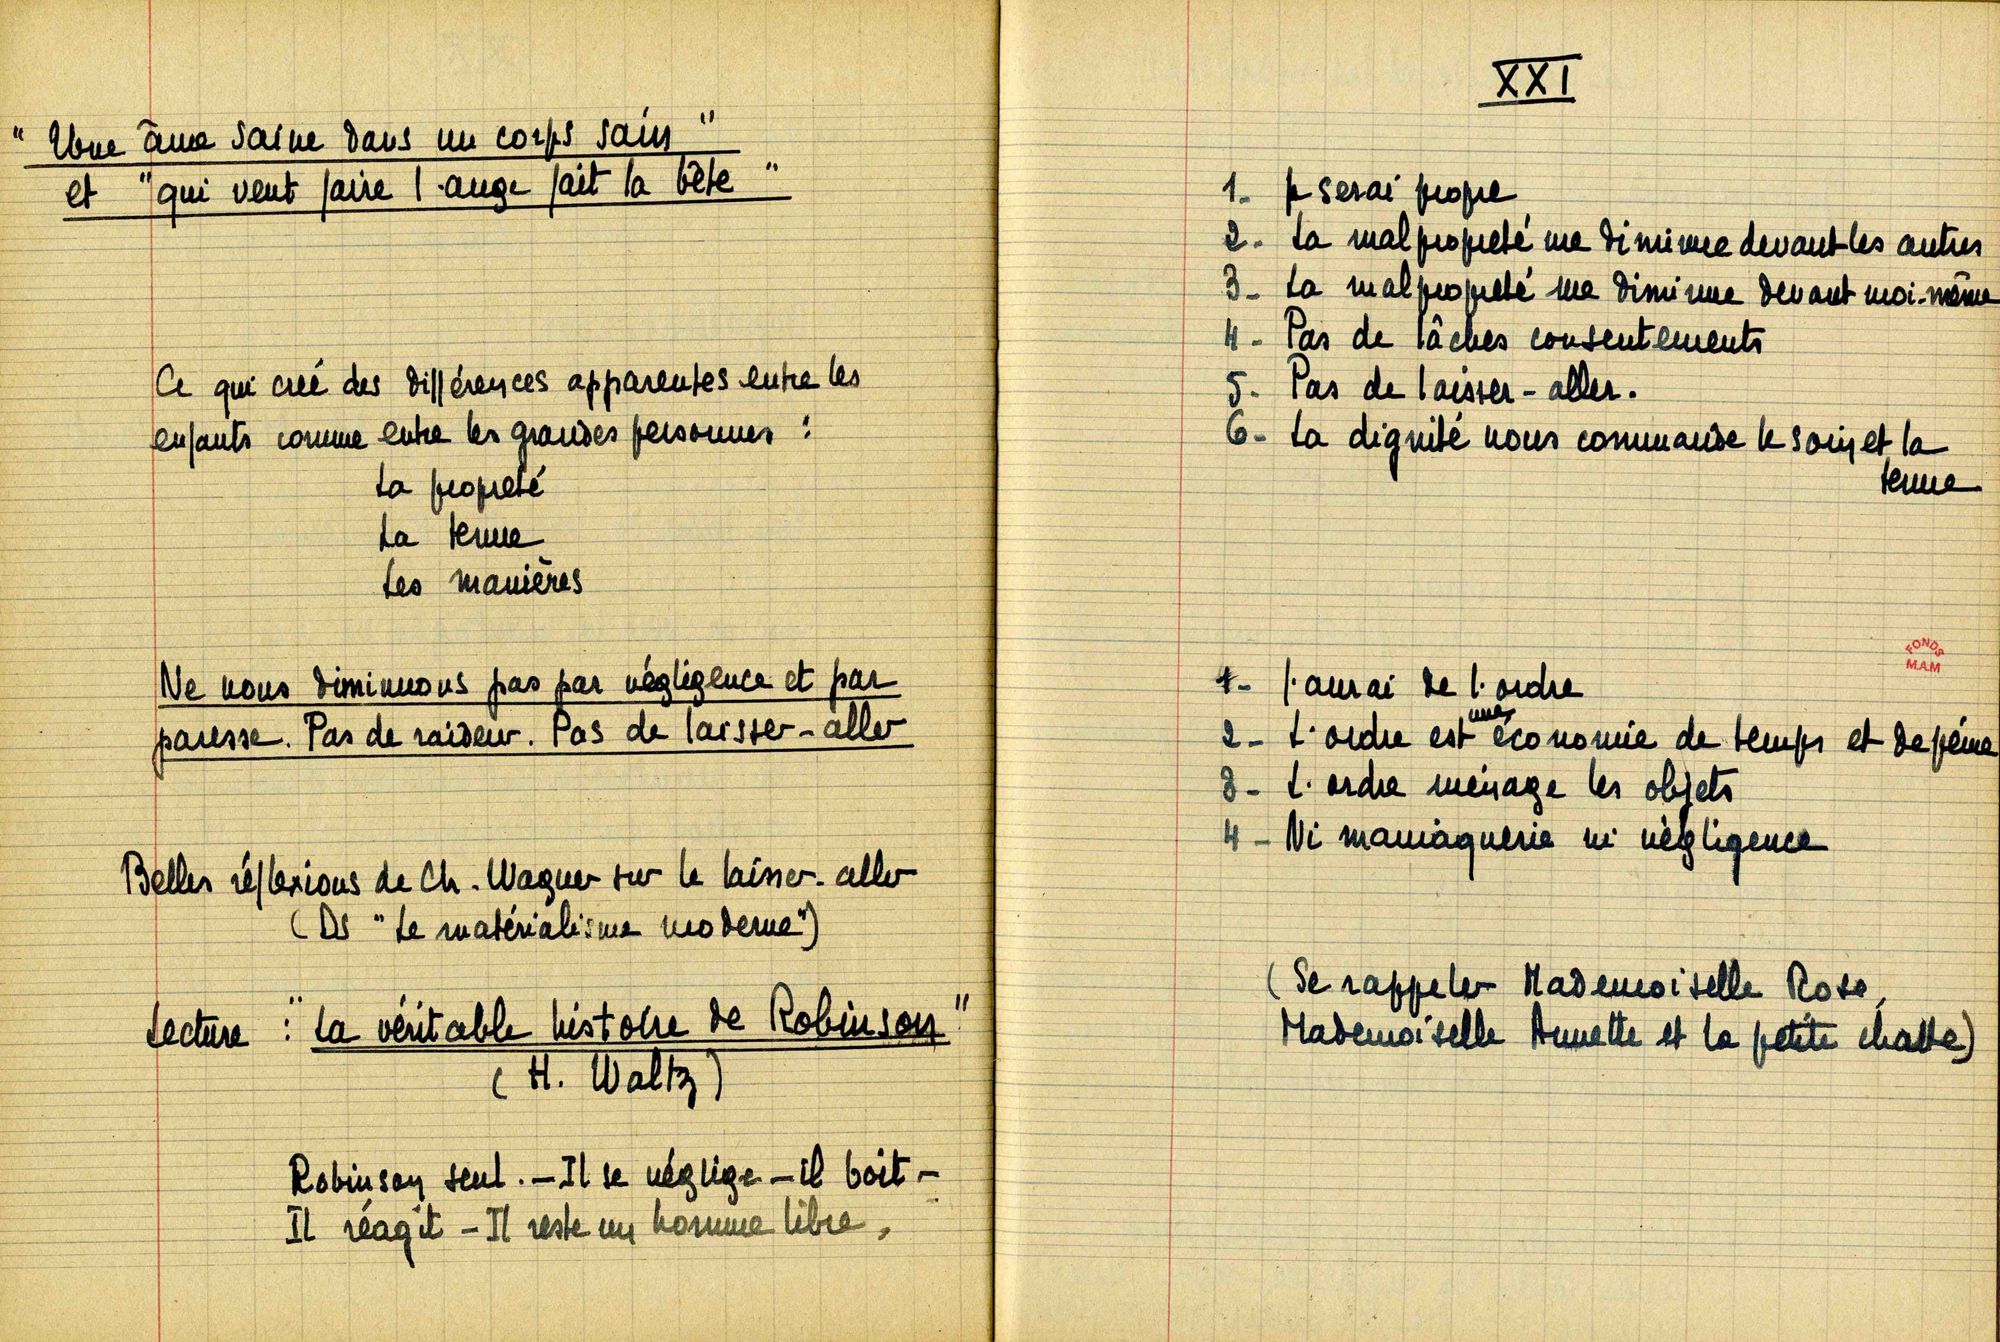 " Une âme saine dans un corps sain "
et "qui veut faire l'ange fait la bête "
Ce qui creé des différences apparentes entre les
enfants comme entre les grandes personnes :
La propreté
La tenue
Les manières
Ne nous diminuons pas par négligence et par
paresse. Pas de raideur. Pas de laisser-aller
Belles réflexions de Ch. Wagner sur le laisser-aller
(Ds "Le matérialisme moderne")
Lecture : "La véritable histoire de Robinson"
(H. Waltz)
Robinson seul. - Il se néglige - il boit -
Il réagit - Il reste un homme libre.
XXI
1- Je serai propre
2- La malpropreté me diminue devant les autres
3- La malpropreté me diminue devant moi-même
4- Pas de lâches consentements
5- Pas de laisser-aller.
6- La dignité nous commande le soin et la
tenue
FONDS
M.A.M
1- J'aurai de l'ordre
2- L'ordre est une économie de temps et de peine
3- L'ordre ménage les objets
4- Ni maniaquerie ni négligence
(Se rappeler Mademoiselle Rose,
Mademoiselle Annette et la petite chatte)